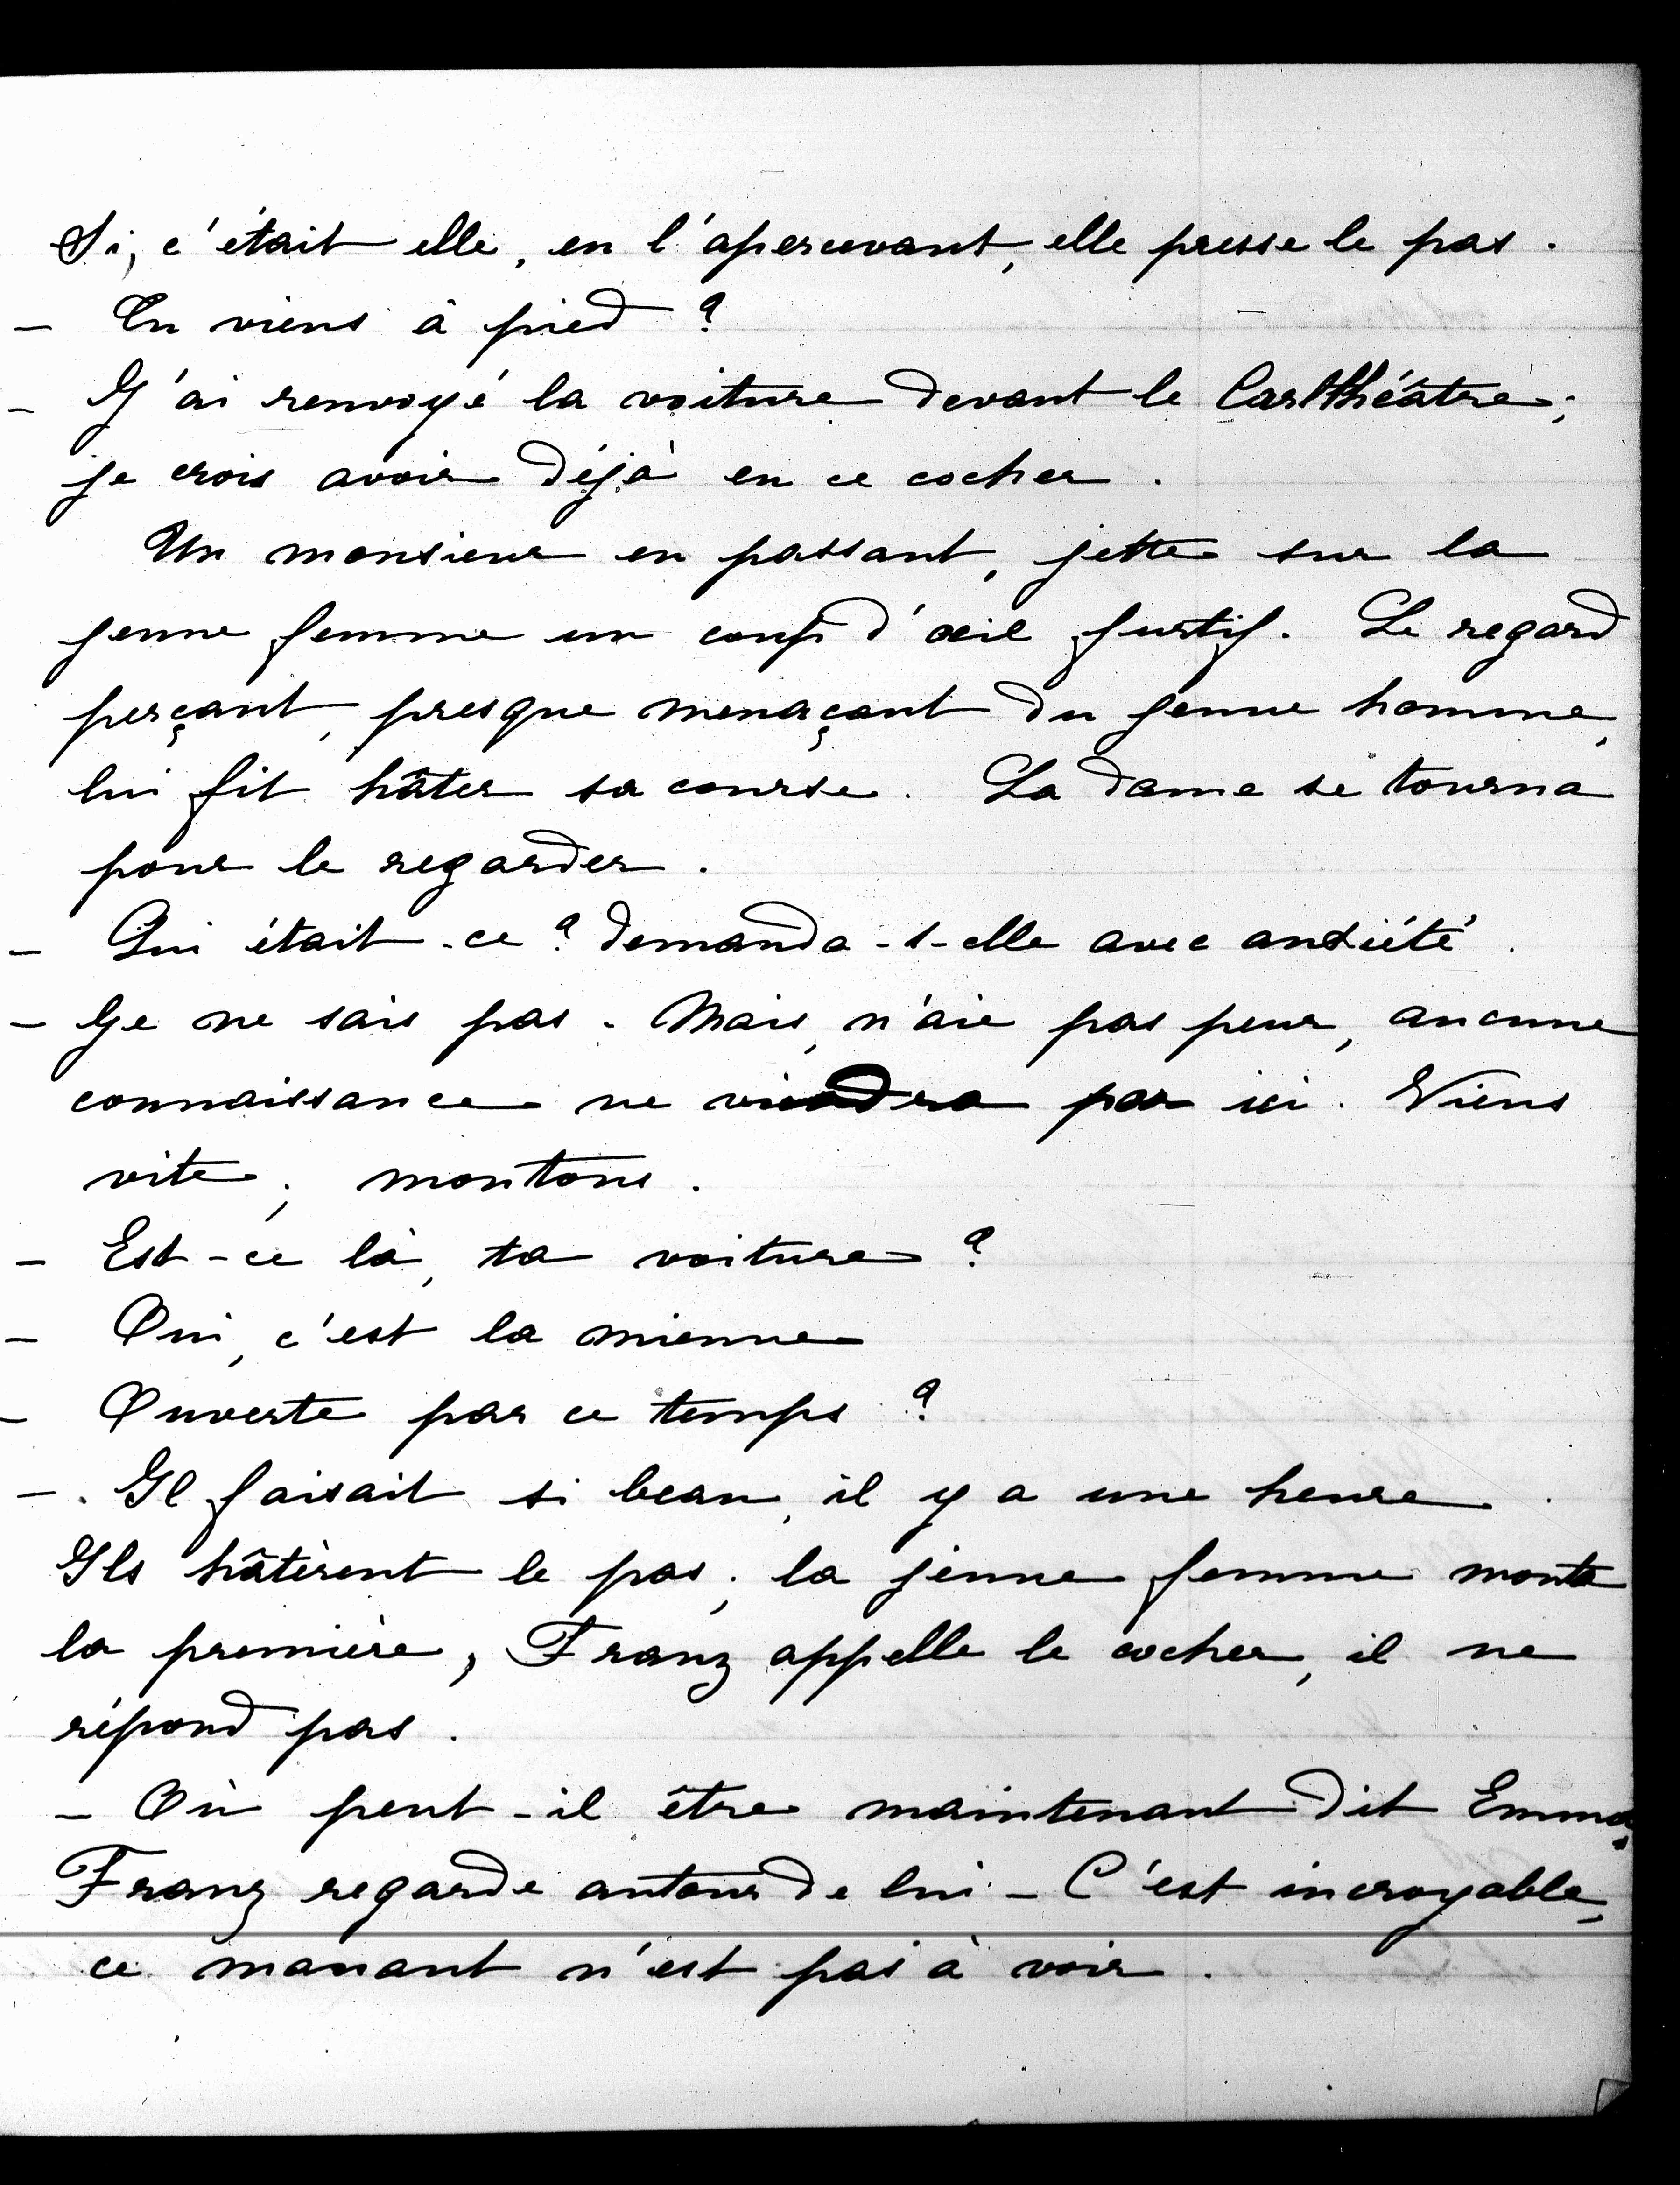 Si, c'était elle, en l'apercevant, elle presse le pas.
– Tu viens à pied ?
– J'ai renvoyé la voiture devant le Carlthéâtre ;
je crois avoir déjà eu ce cocher.
Un monsieur en passant, jette sur la
jeune femme un coup d'œil furtif. Le regard
perçant, presque menaçant du jeune homme,
lui fit hâter sa course. La dame se tourna
pour le regarder.
– Qui était-ce ? demanda-t-elle avec anxiété.
– Je ne sais pas. Mais, n'aie pas peur, aucune
connaissance ne viendra par ici. Viens
vite ; montons.
– Est-ce là, ta voiture ?
– Oui, c'est la mienne
– Ouverte par ce temps ?
– Il faisait si beau, il y a une heure.
Ils hâtèrent le pas ; la jeune femme monta
la première, Franz appelle le cocher, il ne
répond pas.
– Où peut-il être maintenant dit Emma,
Franz regarde autour de lui – C'est incroyable,
ce manant n'est pas à voir.